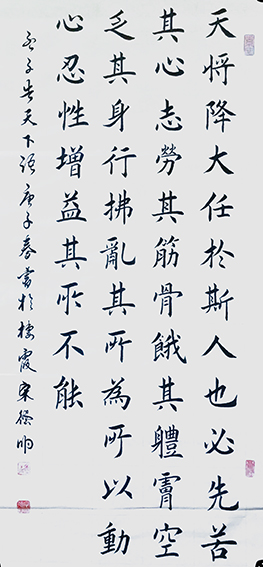 天將降大任於斯人也必先苦
其心志勞其筋骨餓其體膚空
乏其身行拂亂其所為所以動
心忍性增益其所不能
孟子告天下語庚子春書於棲霞宋